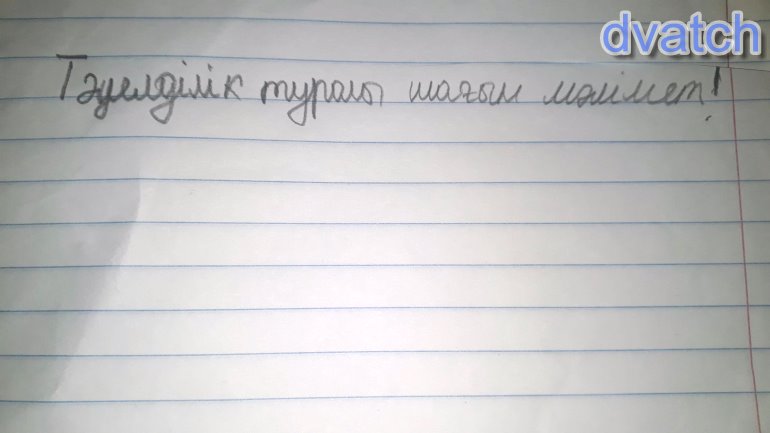 dvatch
Тәуелділік туралы шағын мәлімет!